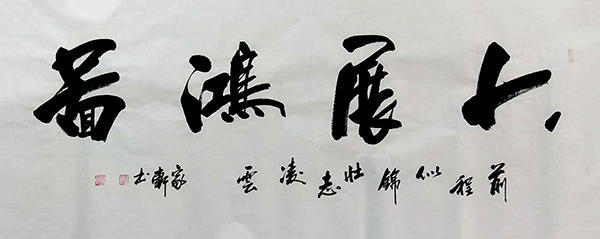 大展鴻圖
前程似錦壯志凌雲 家新书